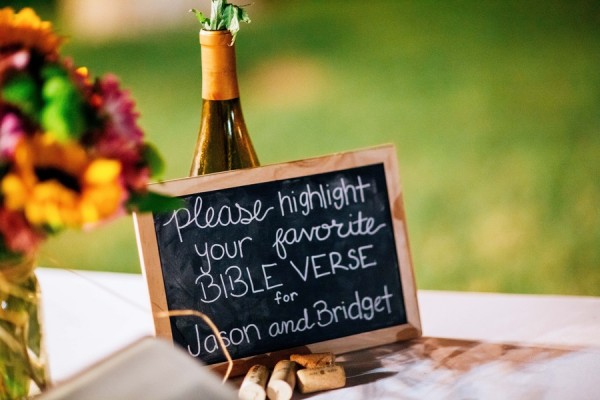 please highlight
your favorite
BIBLE VERSE
for
Jason and Bridget